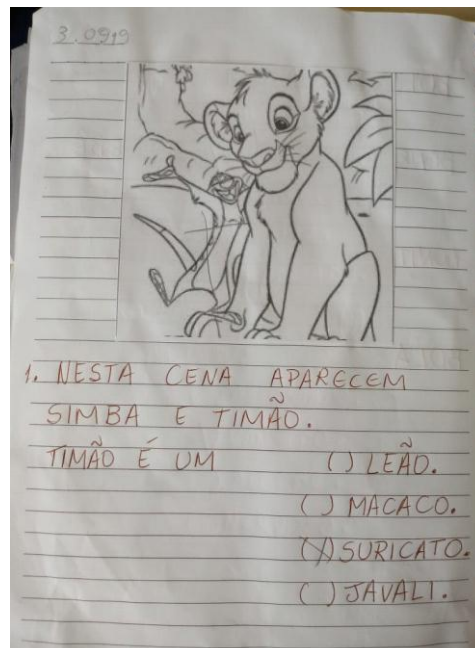 3.0919
1. NESTA CENA APARECEM
SIMBA E TIMÃO.
TIMÃO É UM ( ) LEÃO.
( ) MACACO.
(X) SURICATO.
( ) JAVALI.